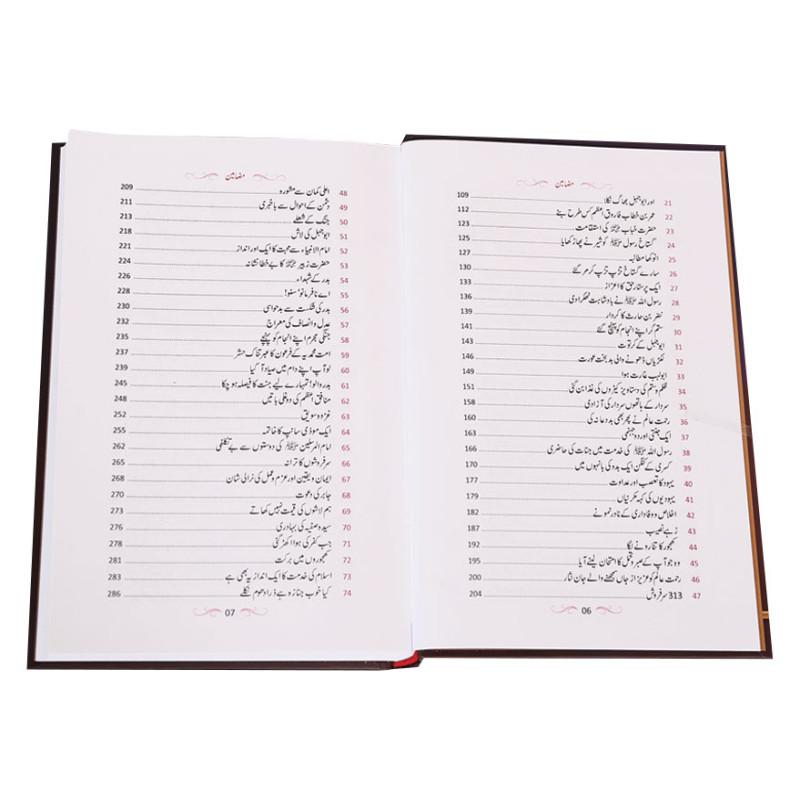 مضامین
21 اور ابوجہل بھاگ نکلا 109
22 عمر بن خطاب فاروق اعظم کس طرح بنے 112
23 حضرت خباب رضی اللہ عنہ کی استقامت 123
24 گستاخ رسول ﷺ کو شیر نے پھاڑ کھایا 125
25 انوکھا مطالبہ 127
26 سارے گستاخ تڑپ تڑپ کر مر گئے 130
27 ایک پرستار حق کا اعزاز 133
28 رسول اللہ ﷺ نے بادشاہت ٹھکرا دی 136
29 نضر بن حارث کا کردار 139
30 ستم گر اپنے انجام کو پہنچ گئے 141
31 ابوجہل کے کرتوت 143
32 لکڑیاں ڈھونے والی بدبخت عورت 146
33 ابولہب غارت ہوا 149
34 ظلم و ستم کی دستاویز کیڑوں کی غذا بن گئی 151
35 سردار کے ہاتھوں سردار کی آزادی 158
36 رحمت عالم نے پھر بھی بددعا نہ کی 160
37 ایک جنتی اور دو جہنمی 163
38 رسول اللہ ﷺ کی خدمت میں جنات کی حاضری 166
39 کسریٰ کے کنگن ایک بدو کی بانہوں میں 170
40 یہود کا تعصب اور عداوت 177
41 یہودیوں کی کہہ مکرنیاں 179
42 اخلاص و وفاداری کے نادر نمونے 183
43 زہے نصیب 187
44 کھجور کا تنا رونے لگا 192
45 وہ جو آپ کے صبر و تحمل کا امتحان لینے آیا 195
46 رحمت عالم کو عزیز از جاں سمجھنے والے جان نثار 200
47 313 سرفروش 204
06
مضامین
48 اعلیٰ کمان سے مشورہ 209
49 دشمن کے احوال سے باخبری 211
50 جنگ کے شعلے 213
51 ابوجہل کی لاش 218
52 امام الانبیاء سے محبت کا ایک اور انداز 221
53 حضرت زبیر رضی اللہ عنہ کا بے خطا نشانہ 224
54 بدر کے شہداء 226
55 اے نافرمانو! سنو! 228
56 بدر کی شکست سے بدحواسی 230
57 عدل و انصاف کی معراج 232
58 جنگی مجرم اپنے انجام کو پہنچے 235
59 امت محمدیہ کے فرعون کا عبرتناک حشر 237
60 لو آپ اپنے دام میں صیاد آ گیا 239
61 بدر والو! تمہارے لیے جنت کا فیصلہ ہو چکا 245
62 منافق اعظم کی دوغلی باتیں 248
63 غزوہ سویق 252
64 ایک موذی سانپ کا خاتمہ 255
65 امام المرسلین ﷺ کی دوستوں سے بے تکلفی 262
66 سرفروشوں کا ترانہ 265
67 ایمان و یقین اور عزم و عمل کی نرالی شان 268
68 جابر کی دعوت 270
69 ہم لاشوں کی قیمت نہیں کھاتے 273
70 سیدہ صفیہ کی بہادری 276
71 جب کفر کی ہوا اکھڑ گئی 278
72 کھجوروں میں برکت 281
73 اسلام کی خدمت کا ایک انداز یہ بھی ہے 283
74 کیا خوب جنازہ ہے ذرا دھوم نکلے 286
07